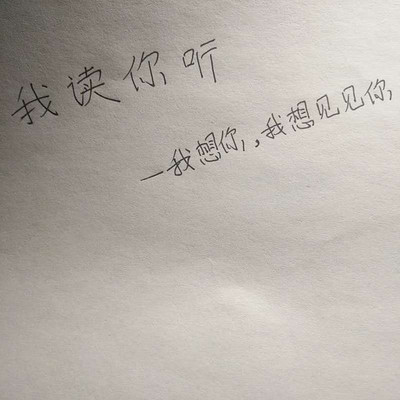 我读你听
—我想你,,我想见见你